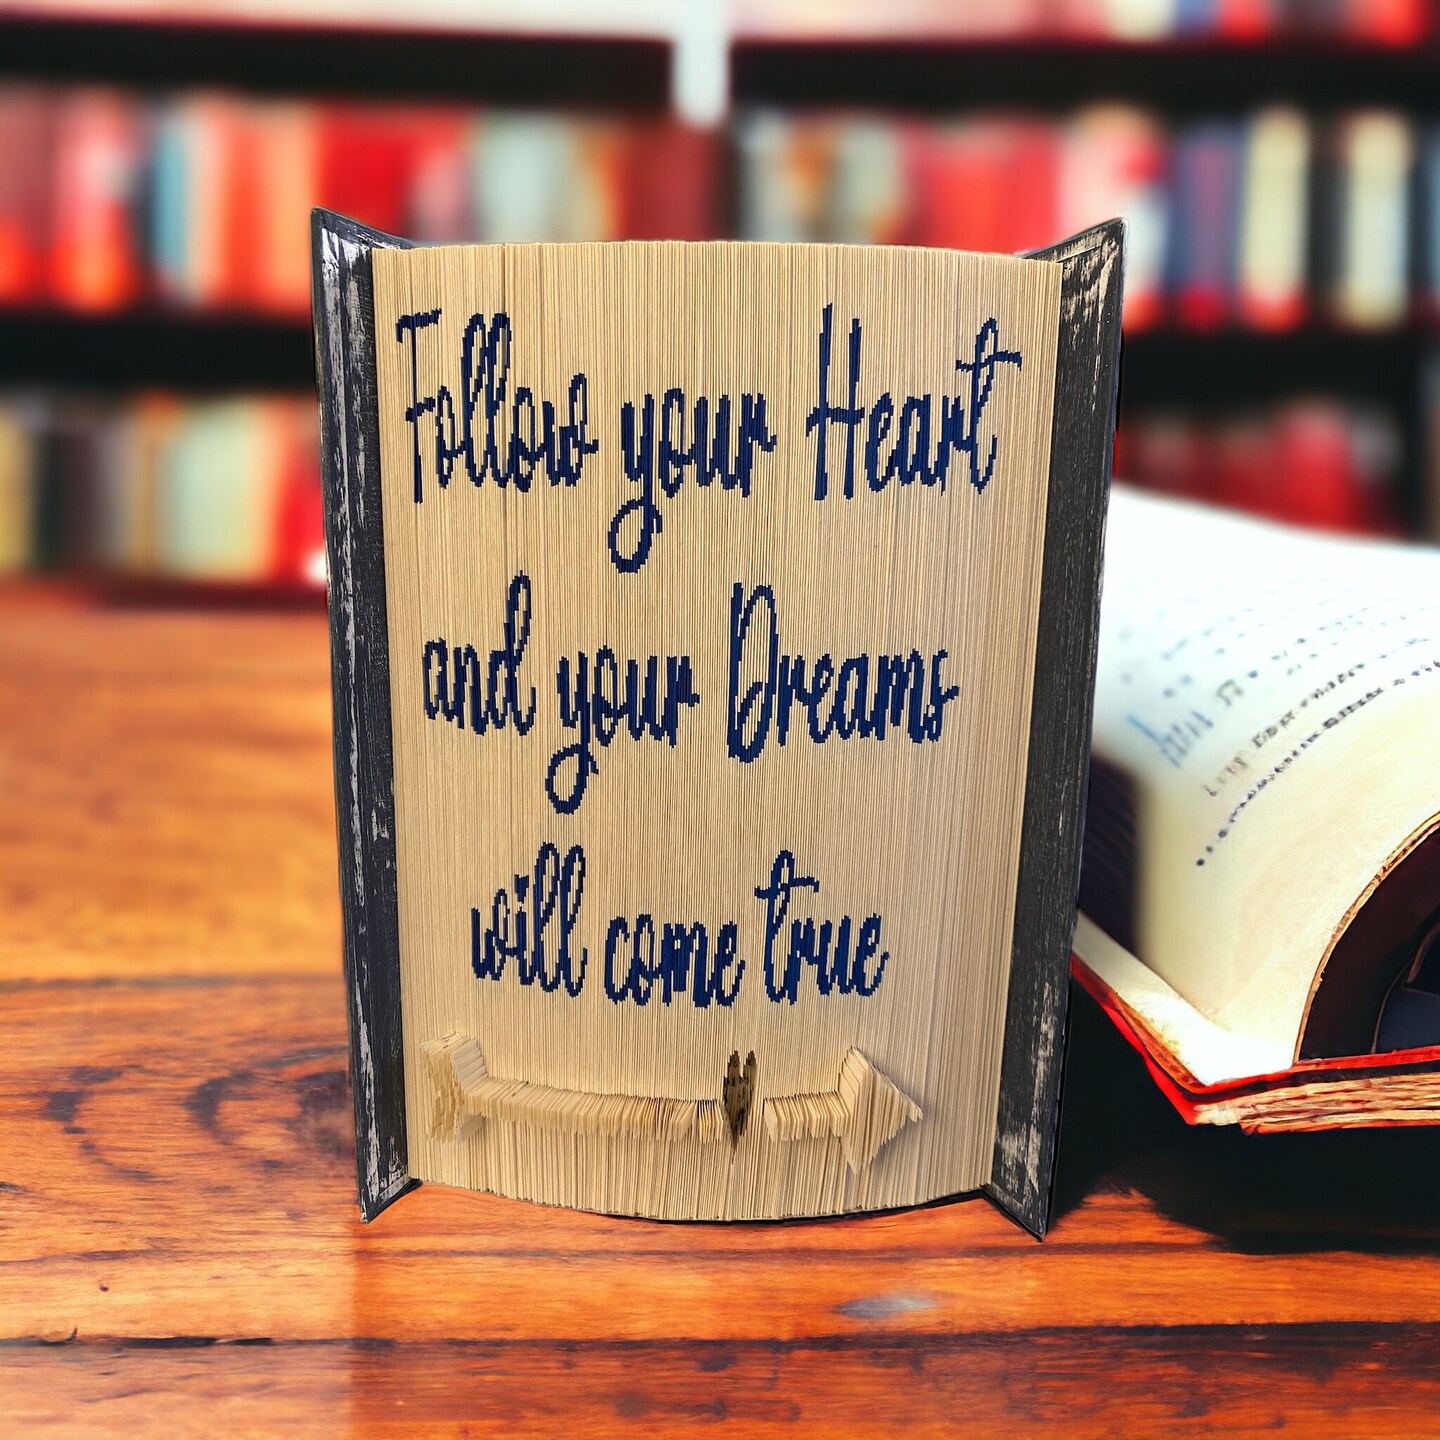 Follow your Heart
and your Dreams
will come true